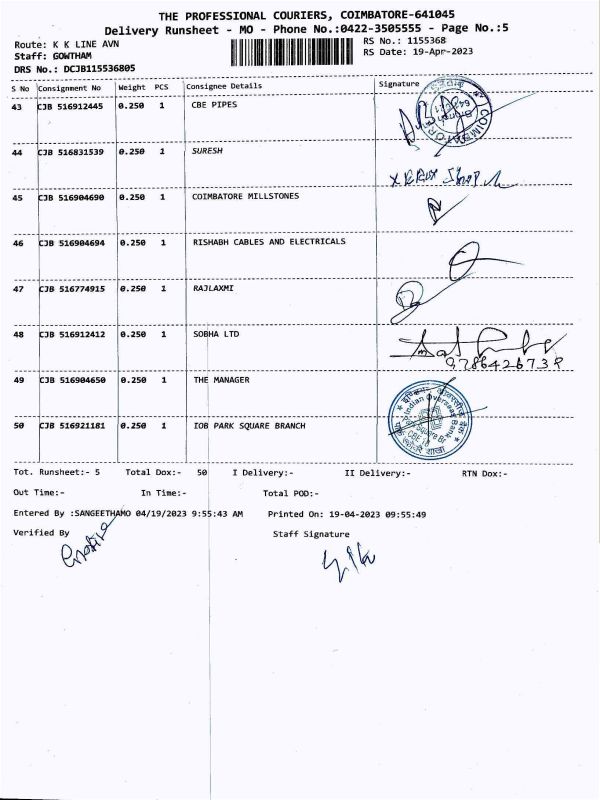 THE PROFESSIONAL COURIERS, COIMBATORE-641045
Delivery Runsheet - MO - Phone No.:0422-3505555 - Page No.:5
Route: K K LINE AVN RS No.: 1155368
Staff: GOWTHAM RS Date: 19-Apr-2023
DRS No.: DCJB115536805
S No Consignment No Weight PCS Consignee Details Signature
43 CJB 516912445 0.250 1 CBE PIPES
44 CJB 516831539 0.250 1 SURESH
45 CJB 516904690 0.250 1 COIMBATORE MILLSTONES
46 CJB 516904694 0.250 1 RISHABH CABLES AND ELECTRICALS
47 CJB 516774915 0.250 1 RAJLAXMI
48 CJB 516912412 0.250 1 SOBHA LTD
9786426738
49 CJB 516904650 0.250 1 THE MANAGER
Indian Overseas Bank
50 CJB 516921181 0.250 1 IOB PARK SQUARE BRANCH
Tot. Runsheet:- 5 Total Dox:- 50 I Delivery:- II Delivery:- RTN Dox:-
Out Time:- In Time:- Total POD:-
Entered By :SANGEETHAMO 04/19/2023 9:55:43 AM Printed On: 19-04-2023 09:55:49
Verified By Staff Signature